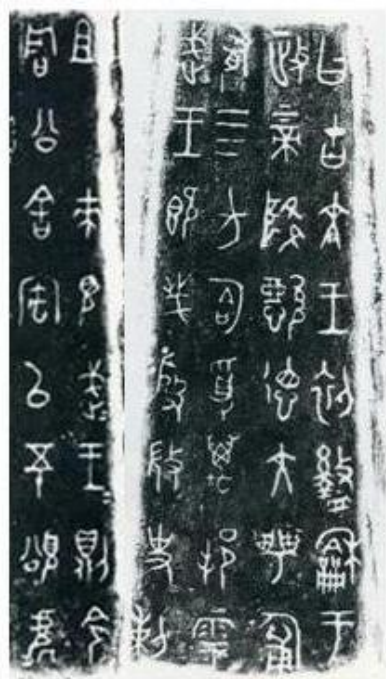 曰古文王初盭龢于
政上帝降懿德大甹匍
有四方匌受萬邦雩
武王既𢦏殷𢼸史剌
且來見武王則令
周公舍㝢以五十頌處